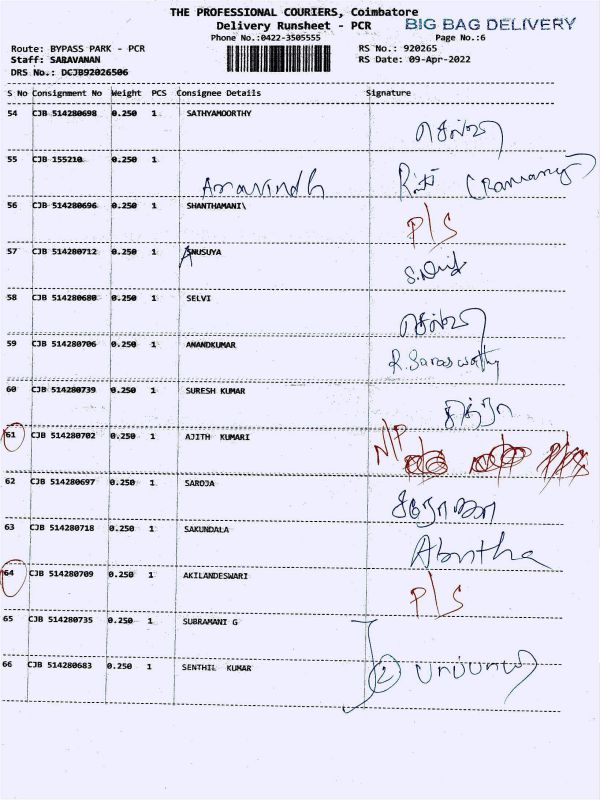 THE PROFESSIONAL COURIERS, Coimbatore
Delivery Runsheet - PCR
BIG BAG DELIVERY
Phone No.:0422-3505555
Page No.:6
Route: BYPASS PARK - PCR
RS No.: 920265
Staff: SARAVANAN
RS Date: 09-Apr-2022
DRS No.: DCJB92026506
S No Consignment No Weight PCS Consignee Details Signature
54 CJB 514280698 0.250 1 SATHYAMOORTHY
55 CJB 155210 0.250 1
Aravindh
56 CJB 514280696 0.250 1 SHANTHAMANI\ P/S
57 CJB 514280712 0.250 1 ANUSUYA
58 CJB 514280680 0.250 1 SELVI
59 CJB 514280706 0.250 1 ANANDKUMAR R. Saraswathy
60 CJB 514280739 0.250 1 SURESH KUMAR
61 CJB 514280702 0.250 1 AJITH KUMARI N/P
62 CJB 514280697 0.250 1 SAROJA சரோஜா
63 CJB 514280718 0.250 1 SAKUNDALA Abntha
64 CJB 514280709 0.250 1 AKILANDESWARI P/S
65 CJB 514280735 0.250 1 SUBRAMANI G
66 CJB 514280683 0.250 1 SENTHIL KUMAR 2